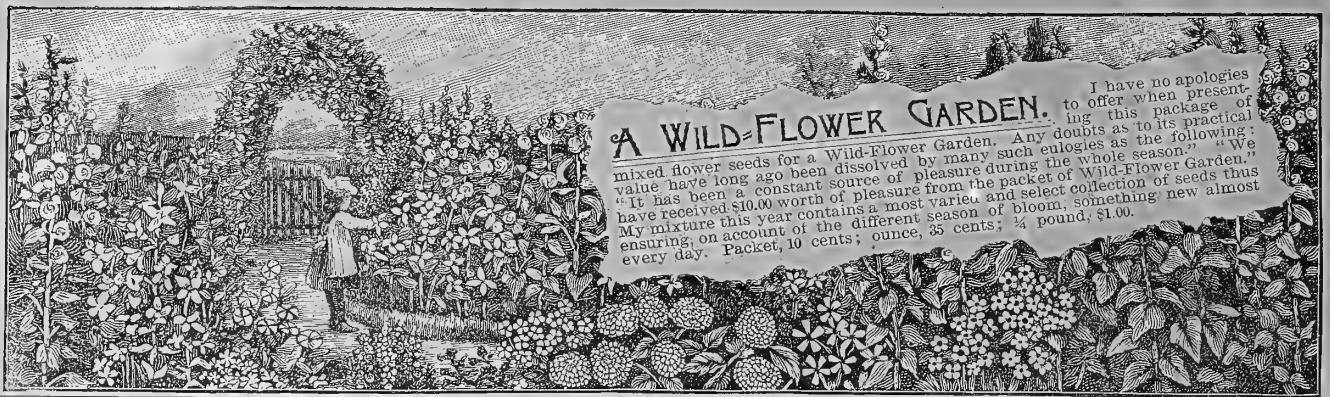 A WILD=FLOWER GARDEN. I have no apologies
to offer when present-
ing this package of
mixed flower seeds for a Wild-Flower Garden. Any doubts as to its practical
value have long ago been dissolved by many such eulogies as the following:
"It has been a constant source of pleasure during the whole season." "We
have received $10.00 worth of pleasure from the packet of Wild-Flower Garden."
My mixture this year contains a most varied and select collection of seeds thus
ensuring, on account of the different season of bloom, something new almost
every day. Packet, 10 cents; ounce, 35 cents; ¼ pound, $1.00.